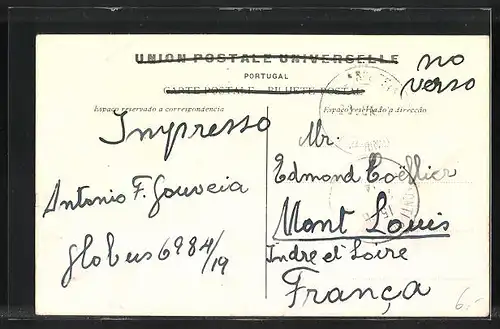 UNION POSTALE UNIVERSELLE
PORTUGAL
CARTE POSTALE - BILHETE POSTAL
no
verso
Espaço reservado a correspondencia
Espaço reservado a direcção
Impresso
Antonio F. Gouveia
Globus 6984/19
Mr.
Edmond Coëffier
Mont Louis
Indre et Loire
França
6,-